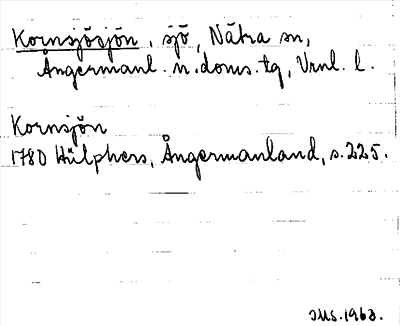 Kornsjösjön, sjö, Nätra sn,
Ångermanl. n. doms. tg, Vrnl. l.
Kornsjön
1780 Hülphers, Ångermanland, s. 225.
JMS. 1963.